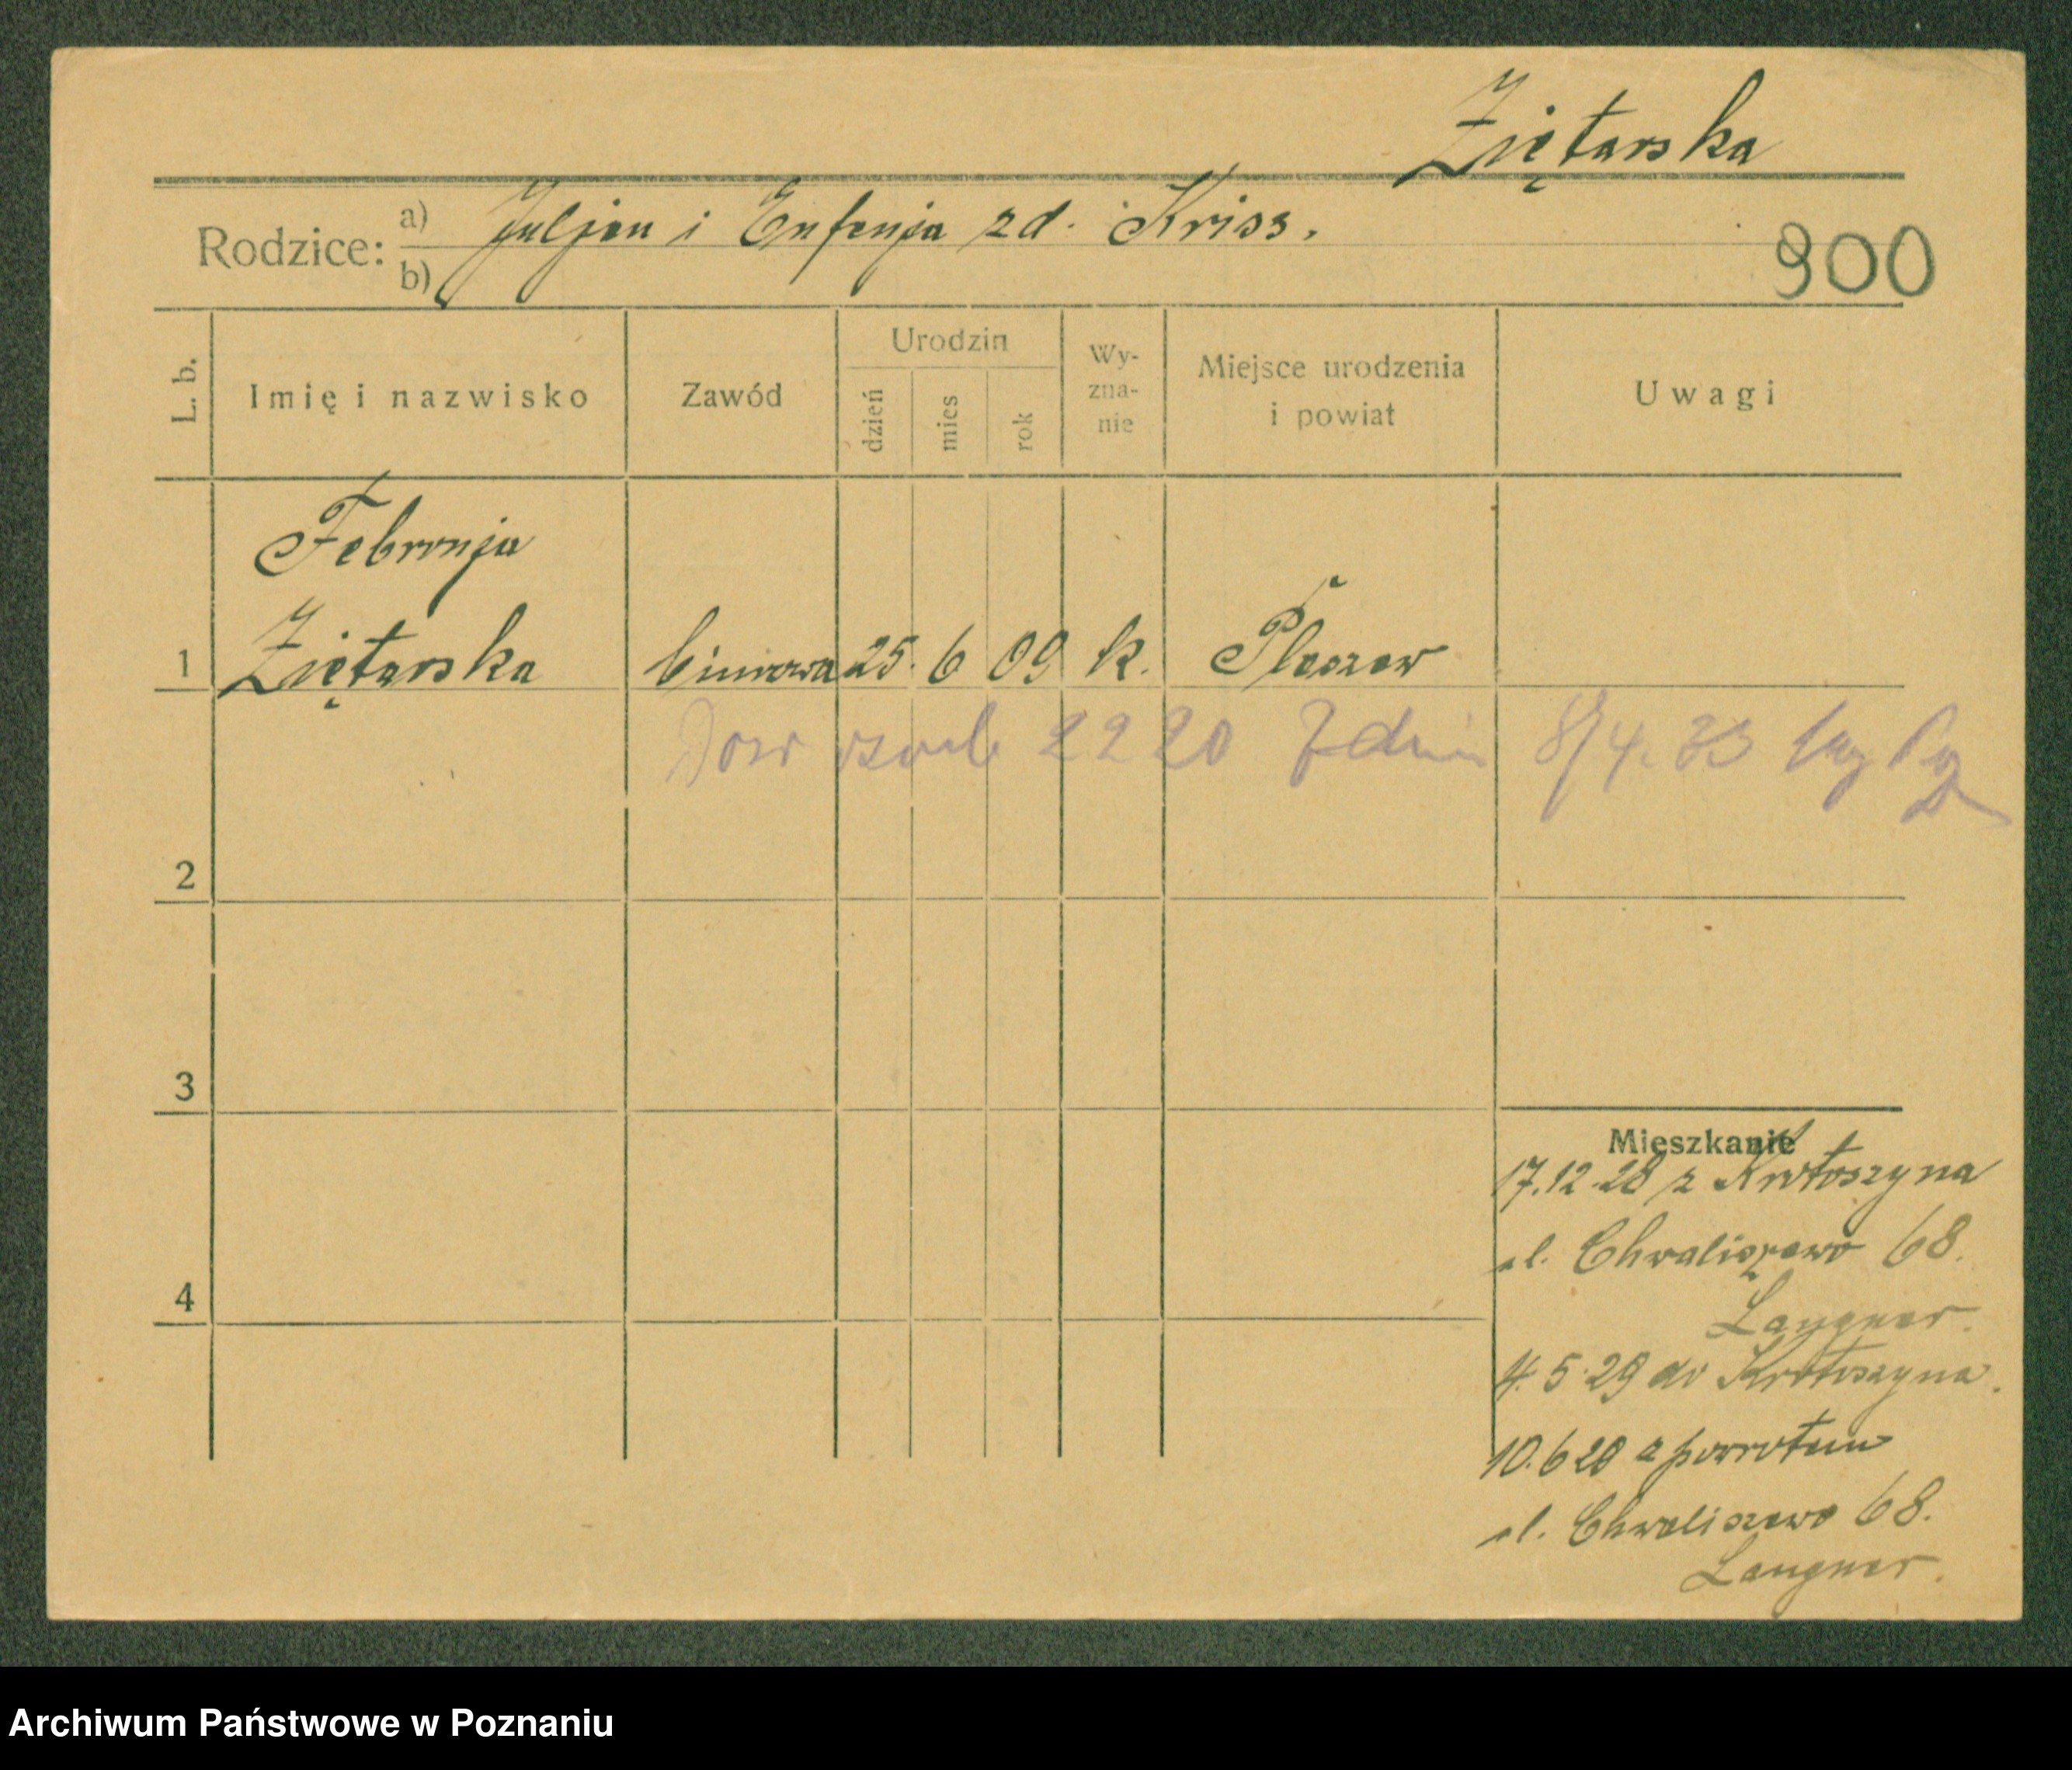 Ziętarska
Rodzice: a) Juljan i Eufenja zd. Kriss.
b)
900
L. b. Imię i nazwisko Zawód Urodzin dzień mies rok Wy-zna-nie Miejsce urodzenia i powiat Uwagi
Febronja
1 Ziętarska biurowa 25. 6 09 k. Pleszew
Dow osob 2220 Zdnia 8/4. 33
2
3
Mieszkanie
17.12.28 z Krotoszyna
ul. Chwaliszewo 68.
4
Langner.
4.5.29 do Krotoszyna.
10.6 29 z powrotem
ul. Chwaliszewo 68.
Langner.
Archiwum Państwowe w Poznaniu